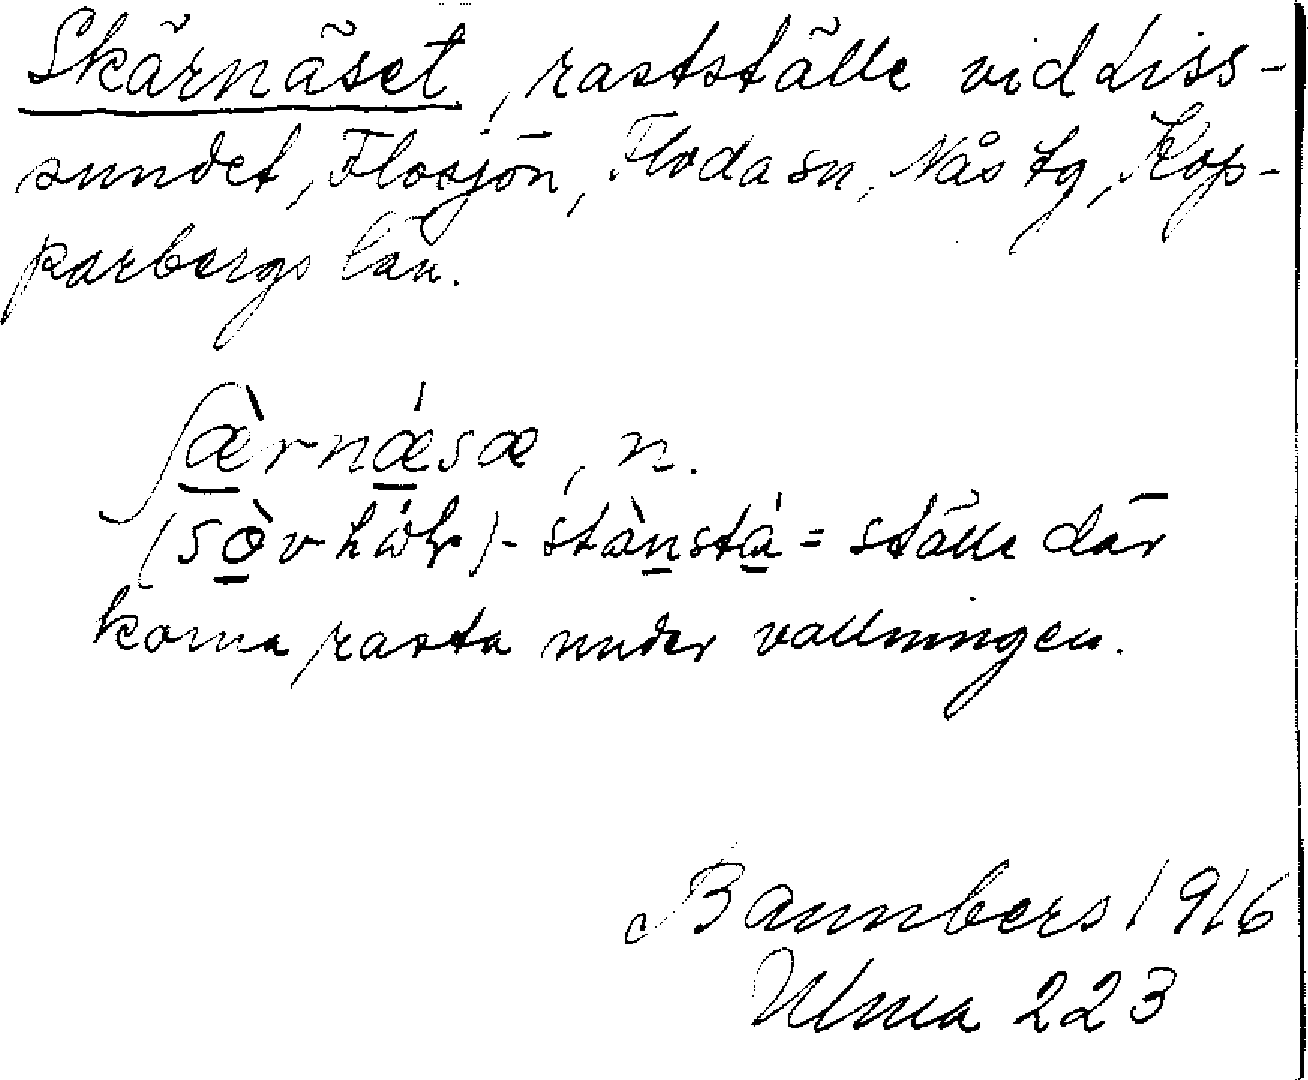 Skärnäset, rastställe vid Liss-
sundet, Flosjön, Floda sn, Nås tg, Kop-
parbergs län.
ʃæ̀rnǽsæ, n.
stànstà = ställe där
korna rasta under vallningen.
Bannbers 1916
Ulma 223